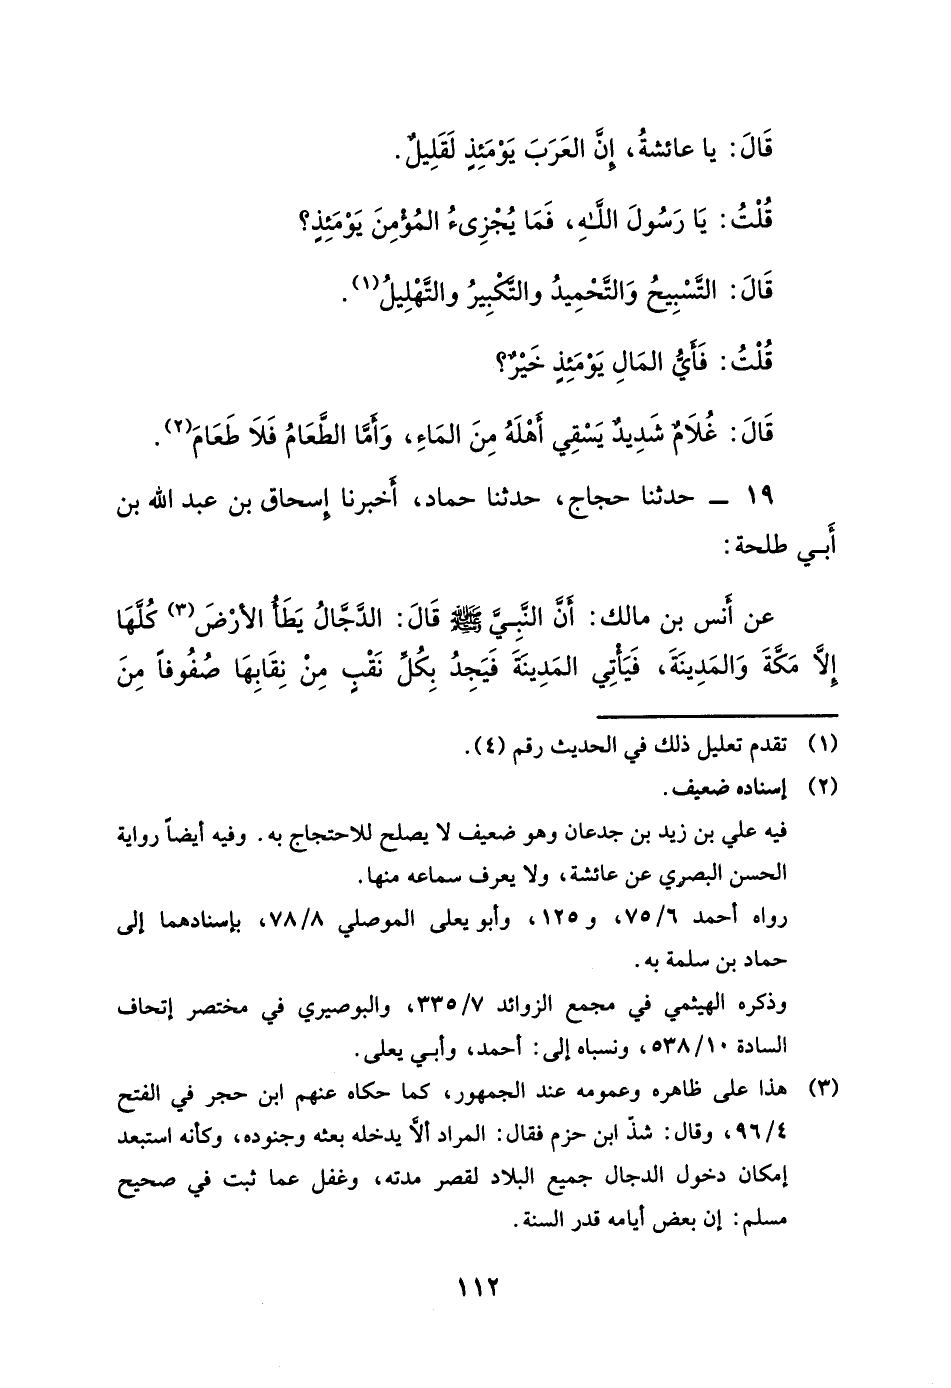 قَالَ: يا عائشةُ، إِنَّ العَرَبَ يَوْمَئِذٍ لَقَلِيلٌ.
قُلْتُ: يَا رَسُولَ اللَّـٰهِ، فَمَا يُجْزِىءُ المُؤْمِنَ يَوْمَئِذٍ؟
قَالَ: التَّسْبِيحُ وَالتَّحْمِيدُ والتَّكْبِيرُ والتَّهْلِيلُ(١).
قُلْتُ: فَأَيُّ المَالِ يَوْمَئِذٍ خَيْرٌ؟
قَالَ: غُلَامٌ شَدِيدٌ يَسْقِي أَهْلَهُ مِنَ المَاءِ، وَأَمَّا الطَّعَامُ فَلَا طَعَامَ(٢).
١٩ ــ حدثنا حجاج، حدثنا حماد، أخبرنا إسحاق بن عبد الله بن
أبـي طلحة:
عن أنس بن مالك: أَنَّ النَّبِـيَّ ﷺ قَالَ: الدَّجَّالُ يَطَأُ الأرْضَ(٣) كُلَّهَا
إِلاَّ مَكَّةَ وَالمَدِينَةَ، فَيَأْتِي المَدِينَةَ فَيَجِدُ بِكُلِّ نَقْبٍ مِنْ نِقَابِهَا صُفُوفاً مِنَ
(١) تقدم تعليل ذلك في الحديث رقم (٤).
(٢) إسناده ضعيف.
فيه علي بن زيد بن جدعان وهو ضعيف لا يصلح للاحتجاج به. وفيه أيضاً رواية
الحسن البصري عن عائشة، ولا يعرف سماعه منها.
رواه أحمد ٧٥/٦، و ١٢٥، وأبو يعلى الموصلي ٧٨/٨، بإسنادهما إلى
حماد بن سلمة به.
وذكره الهيثمي في مجمع الزوائد ٣٣٥/٧، والبوصيري في مختصر إتحاف
السادة ٥٣٨/١٠، ونسباه إلى: أحمد، وأبـي يعلى.
(٣) هذا على ظاهره وعمومه عند الجمهور، كما حكاه عنهم ابن حجر في الفتح
٩٦/٤، وقال: شذّ ابن حزم فقال: المراد ألاَّ يدخله بعثه وجنوده، وكأنه استبعد
إمكان دخول الدجال جميع البلاد لقصر مدته، وغفل عما ثبت في صحيح
مسلم: إن بعض أيامه قدر السنة.
١١٢